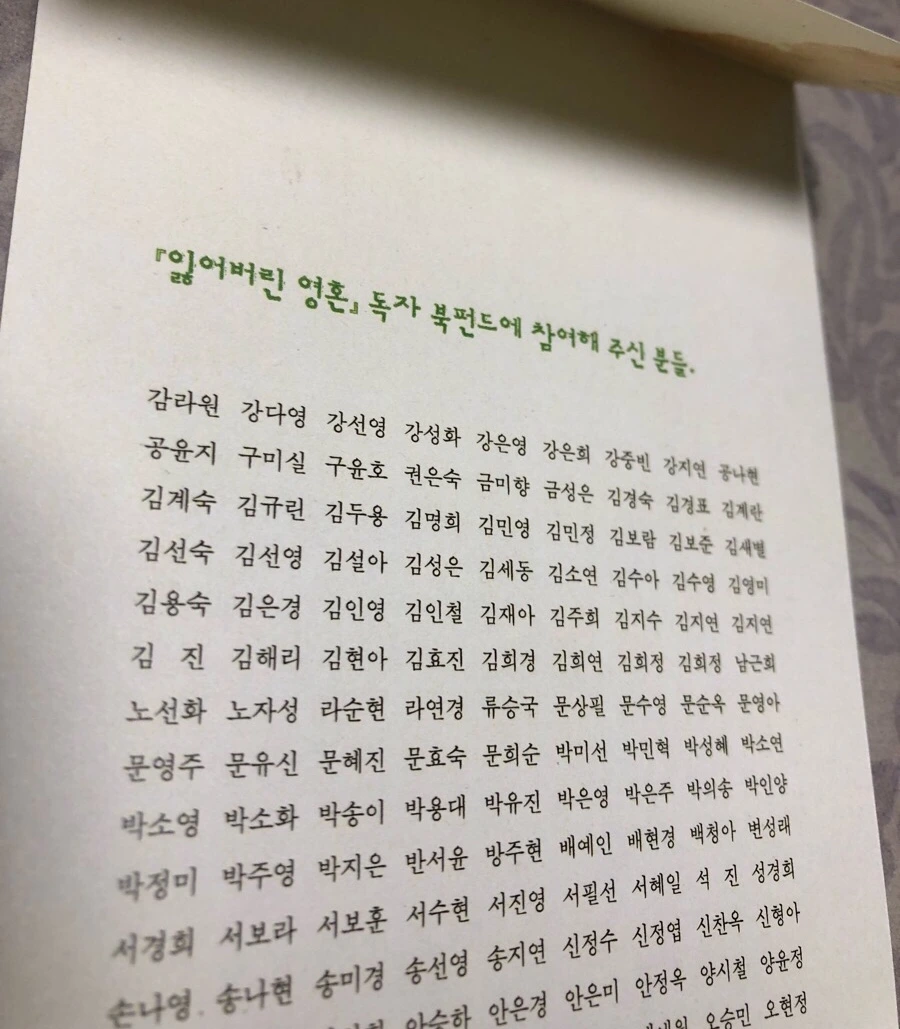 『잃어버린 영혼』 독자 북펀드에 참여해 주신 분들.
감라원 강다영 강선영 강성화 강은영 강은희 강중빈 강지연 공나현
공윤지 구미실 구윤호 권은숙 금미향 금성은 김경숙 김경표 김계란
김계숙 김규린 김두용 김명희 김민영 김민정 김보람 김보준 김새별
김선숙 김선영 김설아 김성은 김세동 김소연 김수아 김수영 김영미
김용숙 김은경 김인영 김인철 김재아 김주희 김지수 김지연 김지연
김 진 김해리 김현아 김효진 김희경 김희연 김희정 김희정 남근희
노선화 노자성 라순현 라연경 류승국 문상필 문수영 문순옥 문영아
문영주 문유신 문혜진 문효숙 문희순 박미선 박민혁 박성혜 박소연
박소영 박소화 박송이 박용대 박유진 박은영 박은주 박의송 박인양
박정미 박주영 박지은 반서윤 방주현 배예인 배현경 백청아 변성래
서경희 서보라 서보훈 서수현 서진영 서필선 서혜일 석 진 성경희
손나영 송나현 송미경 송선영 송지연 신정수 신정엽 신찬옥 신형아
안숙하 안은경 안은미 안정옥 양시철 양윤정
오승민 오현정